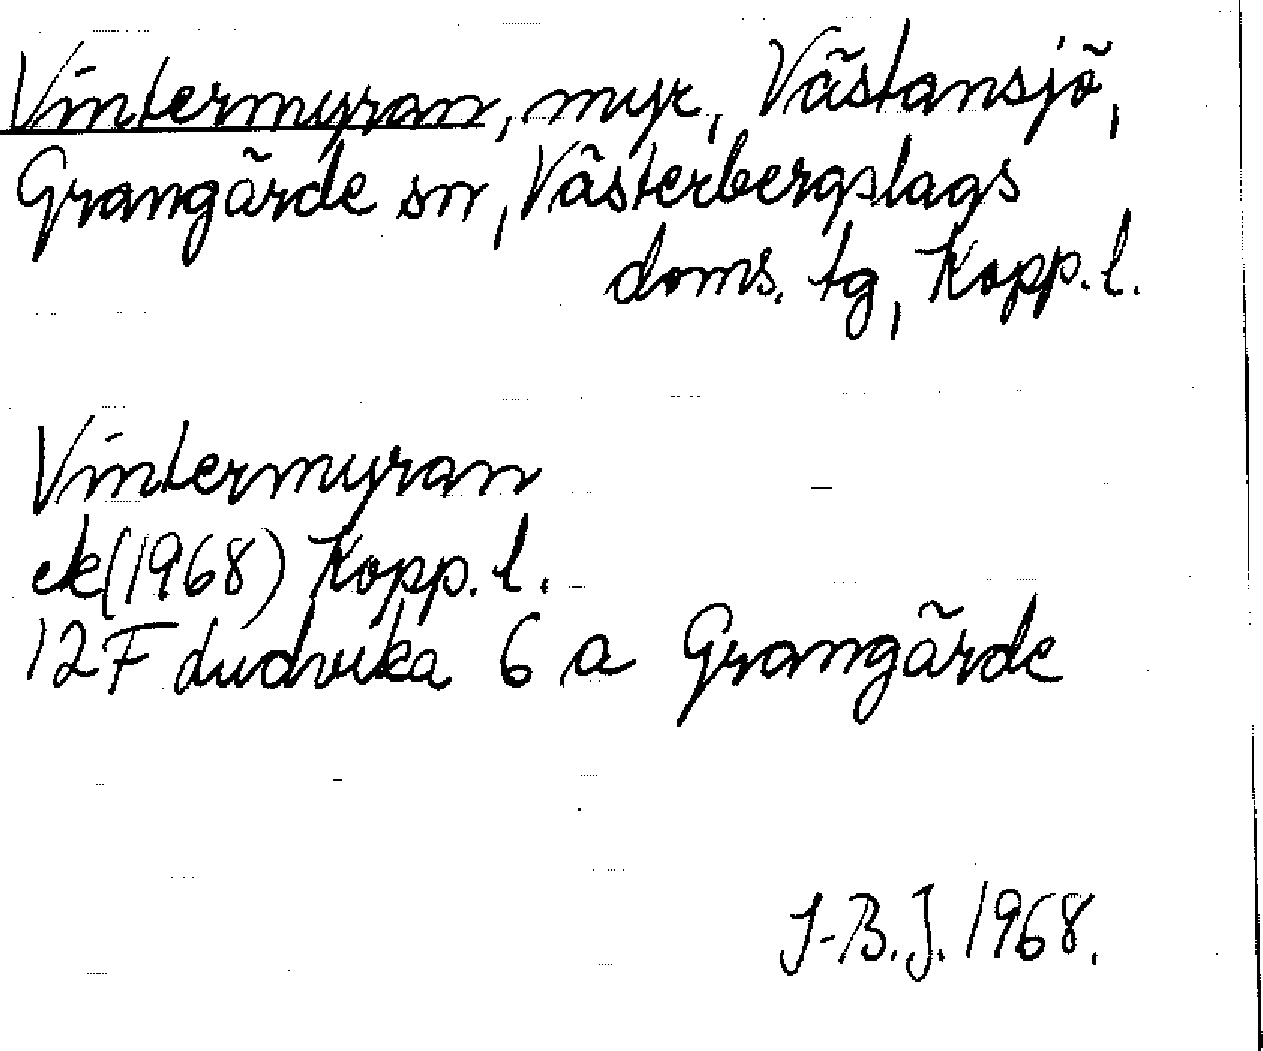 Vintermyran, myr, Västansjö,
Grangärde sn, Västerbergslags
doms. tg, Kopp. l.
Vintermyran
ek (1968) Kopp. l.
12F Ludvika 6 a Grangärde
J-B.J. 1968.